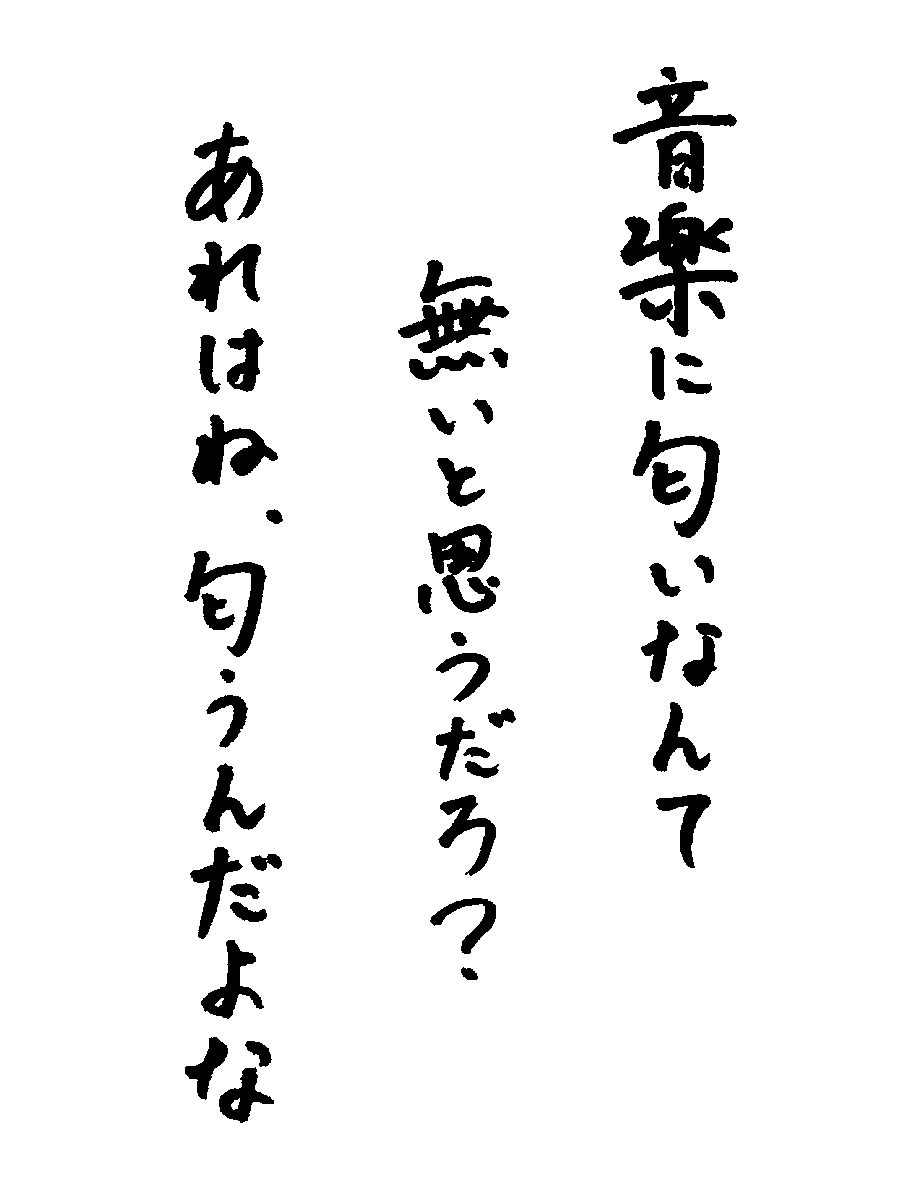 音楽に匂いなんて
無いと思うだろ？
あれはね、匂うんだよな